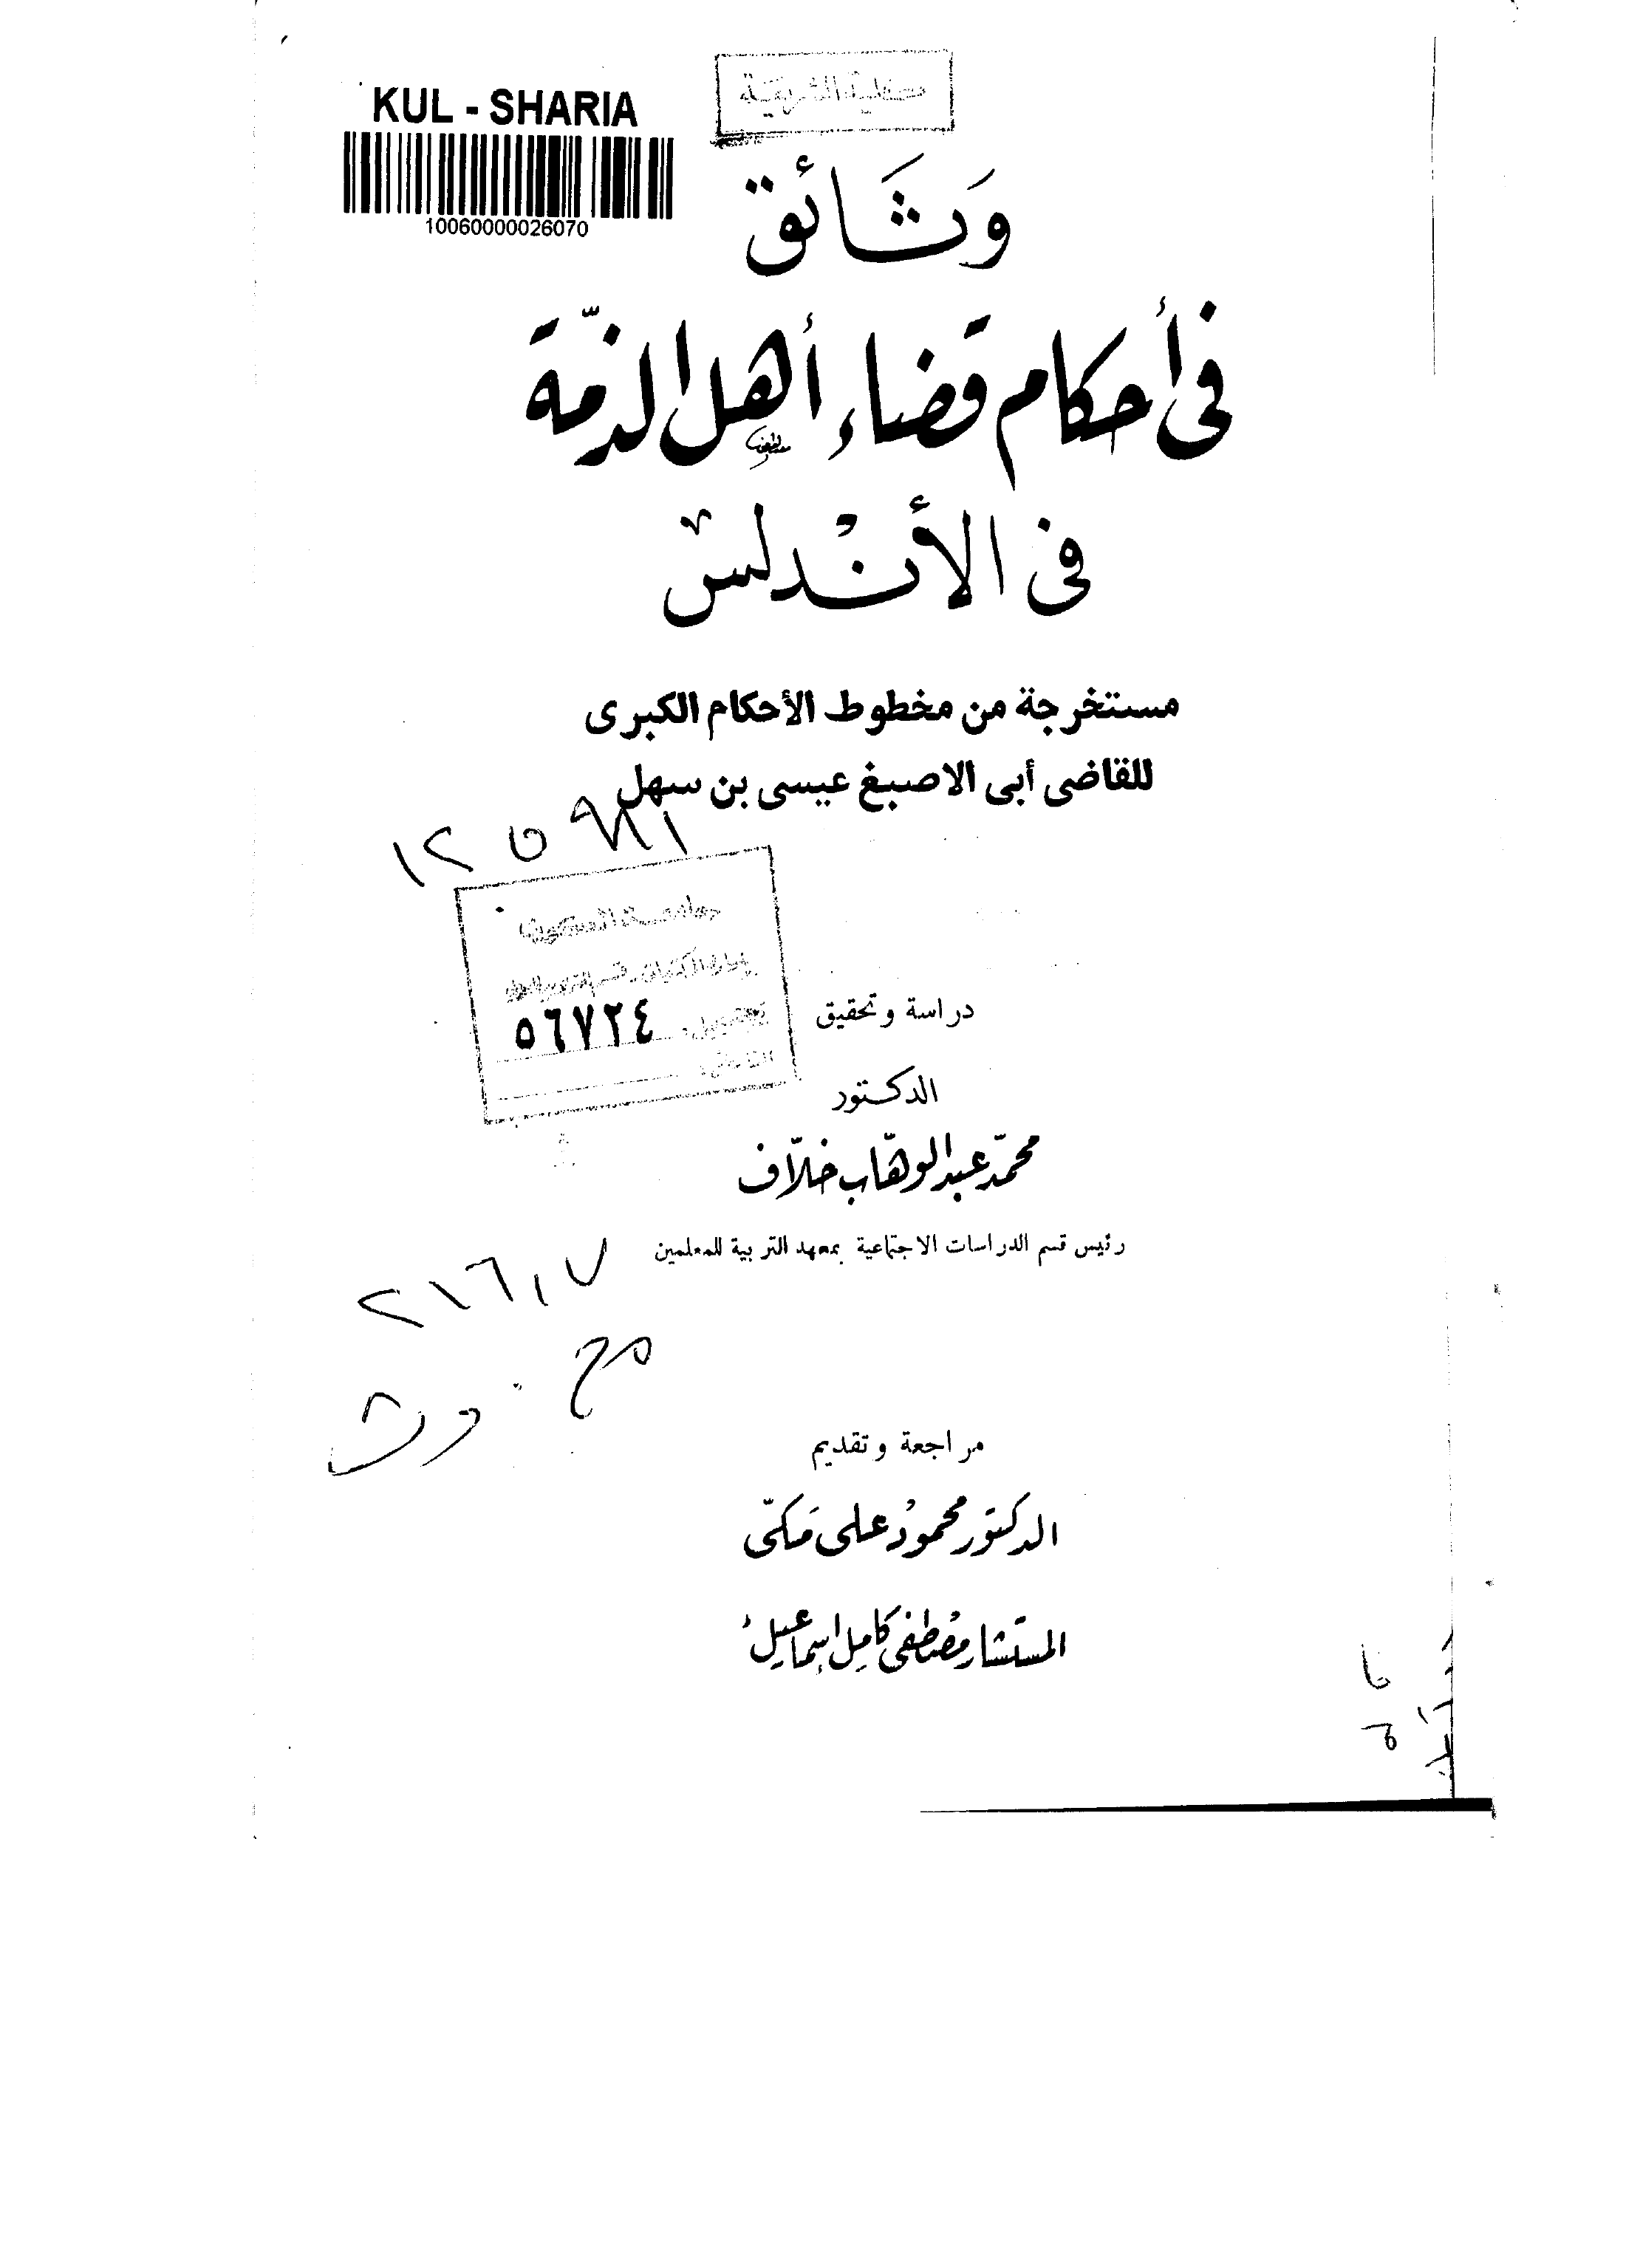 KUL - SHARIA
10060000026070
كلية الشريعة
وَثَائق
فى أحكام قضاء أهل الذمّة
فى الأندلس
مستخرجة من مخطوط الأحكام الكبرى
للقاضى أبى الاصبغ عيسى بن سهل
جامعة الكويت
٥٦٧٢٤
دراسة وتحقيق
الدكتور
محمّد عبد الوهّاب خلّاف
رئيس قسم الدراسات الاجتماعية بمعهد التربية للمعلمين
٢١٦,٧
مراجعة وتقديم
الدكتور محمود على مَكّى
المستشار مصطفى كامل إسماعيل